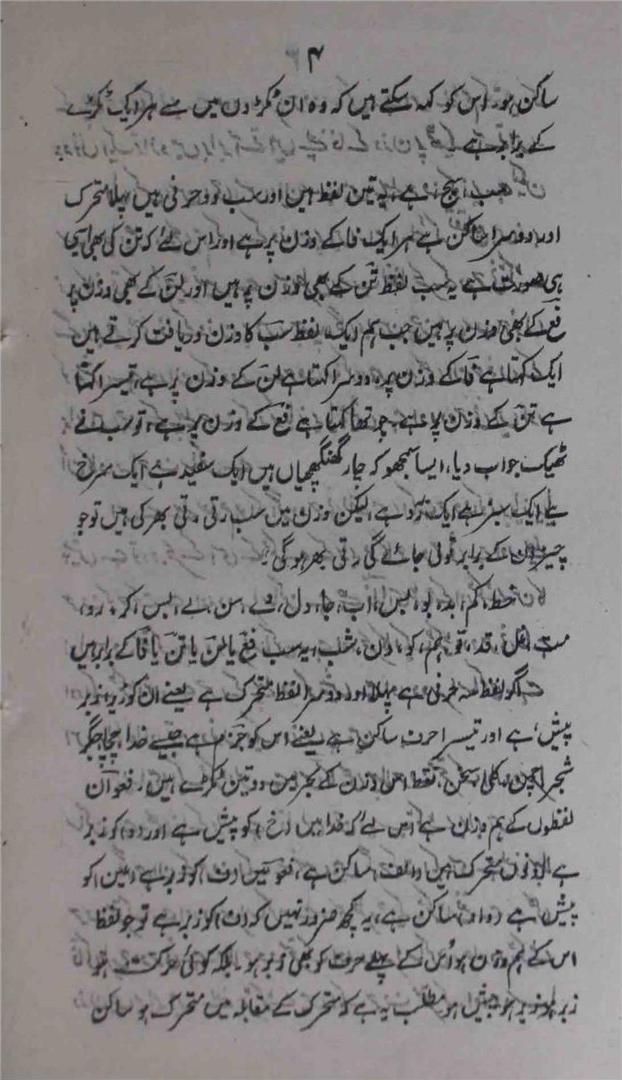 ۴
ساکن ہو۔ اس کو کہہ سکتے ہیں کہ وہ ان ٹکڑوں میں سے ہر ایک ٹکڑے
کے برابر ہے
سب، ہے، یہ تین لفظ ہیں اور سب دو حرفی ہیں پہلا متحرک
اور دوسرا ساکن ہے ہر ایک فا کے وزن پر ہے اور اس لئے کہ تن کی بھی ایسی
ہی صورت ہے یہ سب لفظ تن کے بھی وزن پر ہیں اور لن کے بھی وزن پر
فع کے بھی وزن پر ہیں جب ہم ایک لفظ سب کا وزن دریافت کرتے ہیں
ایک کہتا ہے فا کے وزن پر، دوسرا کہتا ہے لن کے وزن پر ہے، تیسرا کہتا
ہے تن کے وزن پر ہے، چوتھا کہتا ہے فع کے وزن پر ہے، تو سب نے
ٹھیک جواب دیا، ایسا سمجھو کہ چار گھنگھچیاں ہیں ایک سفید ہے ایک سرخ
ہے ایک سبز ہے ایک زرد ہے لیکن وزن میں سب رتی رتی بھر کی ہیں تو جو
چیز ان کے برابر تولی جائے گی رتی بھر ہوگی۔
خط، کم، بد، بو، بس، اب، جا، دل، سے، من، اے، بس، اگر، رو،
مت، قد، تو، ہم، کو، ان، شب، یہ سب فع یا لن یا تن یا فا کے برابر ہیں
اگر لفظ سہ حرفی ہے پہلا اور دوسرا لفظ متحرک ہے یعنے ان کو زیر، زبر
پیش، ہے اور تیسرا حرف ساکن ہے یعنے اس کو جزم ہے جیسے خدا، جگر
شجر، چمن، سخن، فقط اس وزن کے بحر میں دو تین ٹکڑے ہیں۔ فعو ان
لفظوں کے ہم وزن ہے اس لئے کہ خدا میں (خ) کو پیش ہے اور (د) کو زبر
ہے یہ دونوں متحرک ہیں (الف) ساکن ہے، فعو میں (ف) کو زبر ہے (عین) کو
پیش ہے (واو) ساکن ہے، یہ کچھ ضرور نہیں کہ (ف) کو زبر ہے تو جو لفظ
اس کے ہم وزن ہو اُس کے پہلے حرف کو بھی زبر ہو۔ بلکہ کوئی حرکت ہو
زبر ہو زیر ہو پیش ہو مطلب یہ ہے کہ متحرک کے مقابلہ میں متحرک ہو ساکن